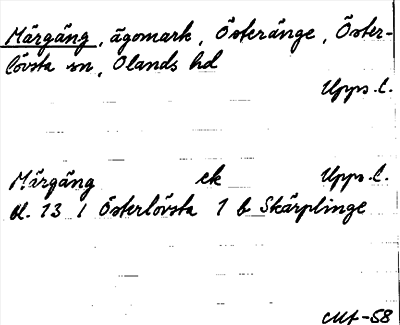 Märgäng, ägomark, Österänge, Öster-
lövsta sn, Olands hd
Upps. l.
Märgäng ek Upps. l.
bl. 13 1 Österlövsta 1 b Skärplinge